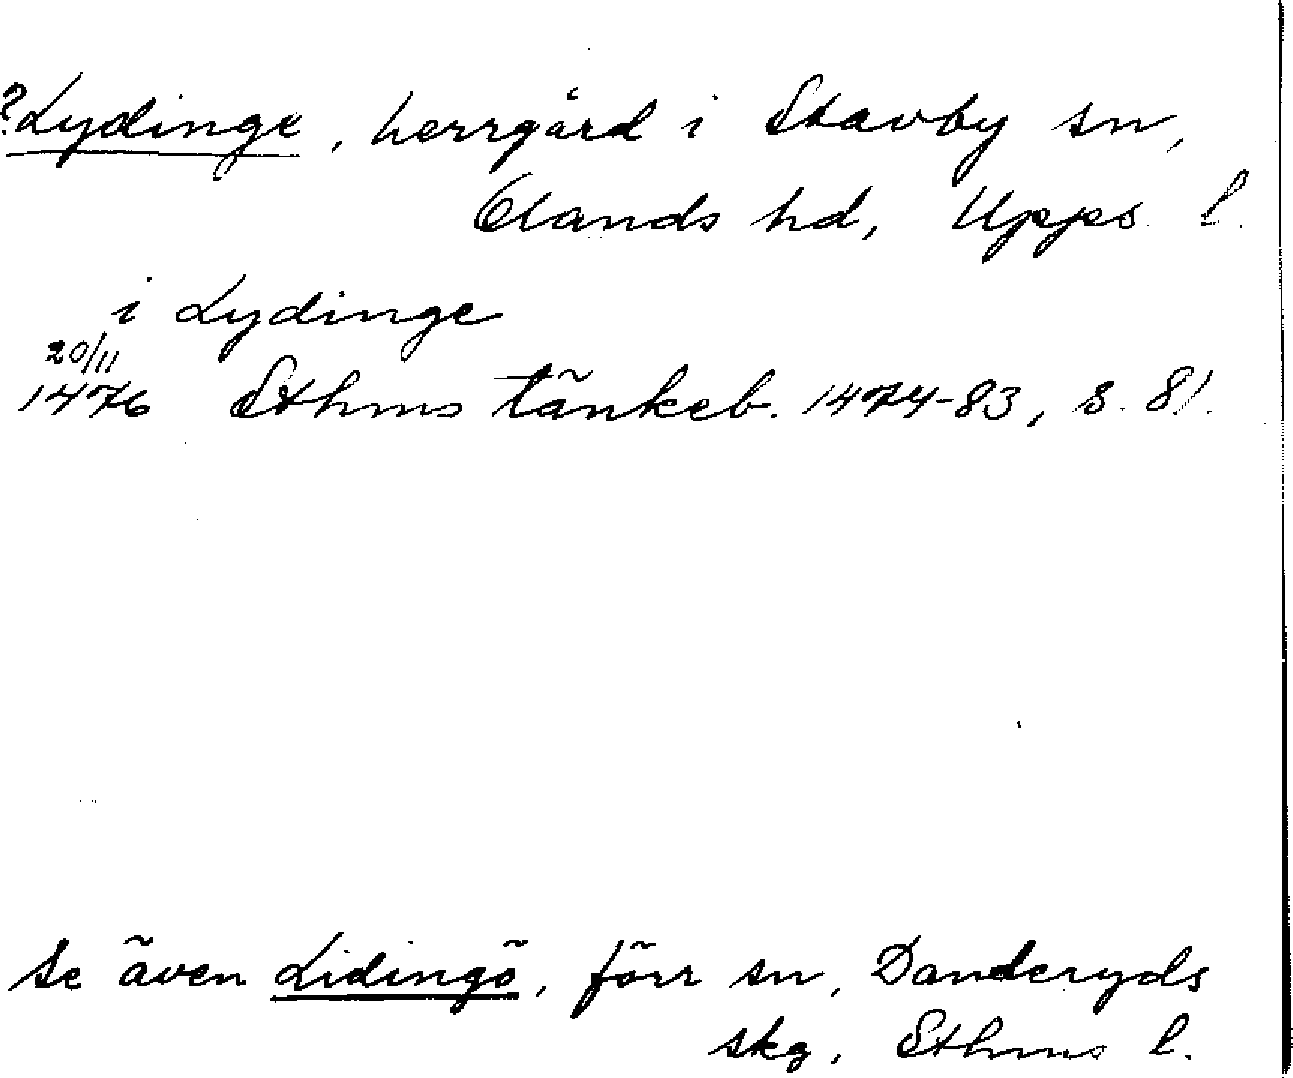 ?Lydinge, herrgård i Stavby sn,
Olands hd, Upps. l.
i Lydinge
20/11
1476 Sthms tänkeb. 1474-83, s. 81.
Se även Lidingö, förr sn, Danderyds
skg, Sthms l.